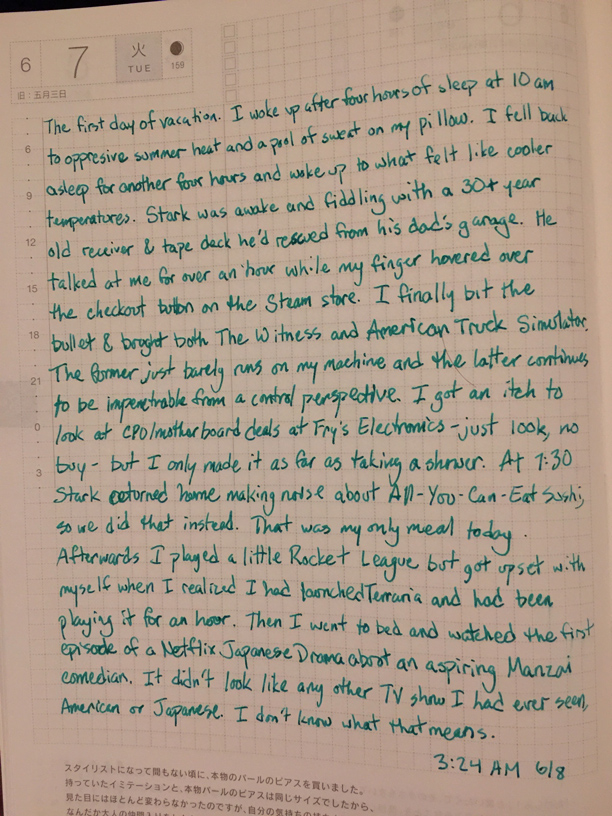 6 7 火 TUE 159
旧:五月三日
The first day of vacation. I woke up after four hours of sleep at 10 am
to oppresive summer heat and a pool of sweat on my pillow. I fell back
asleep for another four hours and woke up to what felt like cooler
temperatures. Stark was awake and fiddling with a 30+ year
old receiver & tape deck he'd rescued from his dad's garage. He
talked at me for over an hour while my finger hovered over
the checkout button on the Steam store. I finally bit the
bullet & bought both The Witness and American Truck Simulator.
The former just barely runs on my machine and the latter continues
to be impenetrable from a control perspective. I got an itch to
look at CPU/motherboard deals at Fry's Electronics - just look, no
buy - but I only made it as far as taking a shower. At 7:30
Stark returned home making noise about All-You-Can-Eat Sushi,
so we did that instead. That was my only meal today.
Afterwards I played a little Rocket League but got upset with
myself when I realized I had launched Terraria and had been
playing it for an hour. Then I went to bed and watched the first
episode of a Netflix Japanese Drama about an aspiring Manzai
comedian. It didn't look like any other TV show I had ever seen,
American or Japanese. I don't know what that means.
3:24 AM 6/8
6
9
12
15
18
21
0
3
スタイリストになって間もない頃に、本物のパールのピアスを買いました。
持っていたイミテーションと、本物パールのピアスは同じサイズでしたから、
見た目にはほとんど変わらなかったのですが、自分の気持ちの
なんだか大人の仲間入り